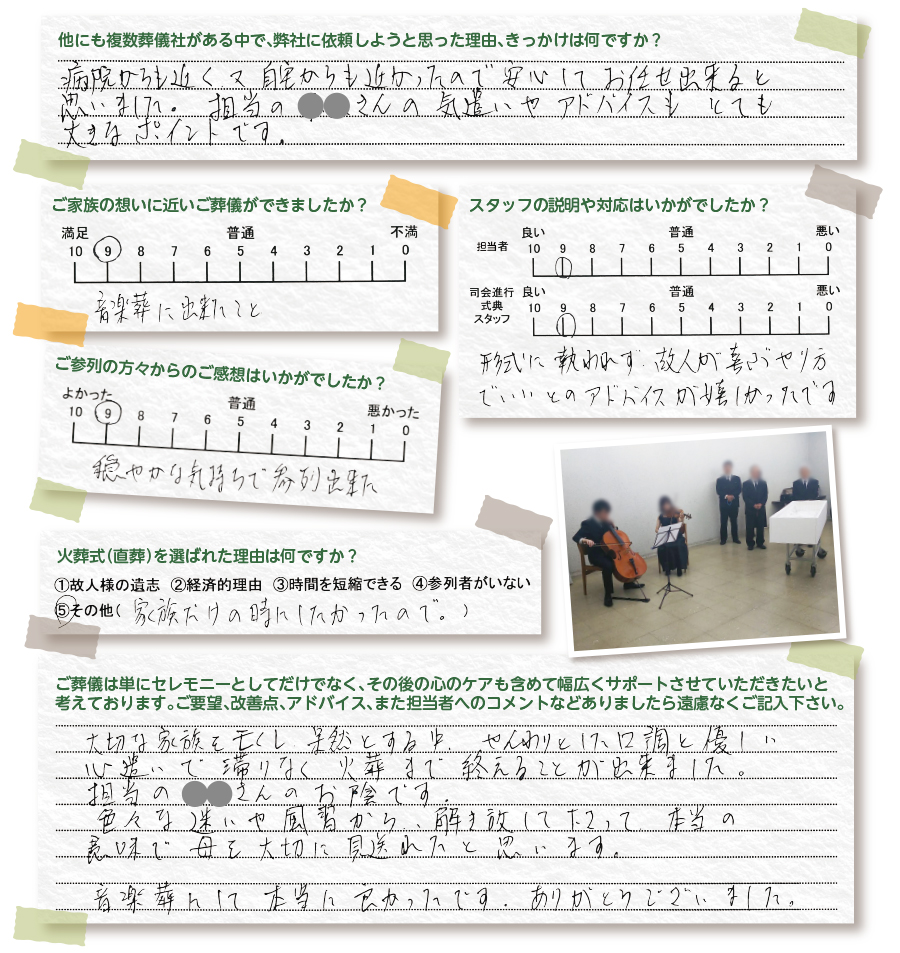 他にも複数葬儀社がある中で、弊社に依頼しようと思った理由、きっかけは何ですか？
病院からも近く又自宅からも近かったので安心してお任せ出来ると
思いました。担当の●●さんの気遣いやアドバイスも とても
大きなポイントです。
ご家族の想いに近いご葬儀ができましたか？
満足 普通 不満
10 9 8 7 6 5 4 3 2 1 0
音楽葬に出来たこと
スタッフの説明や対応はいかがでしたか？
良い 普通 悪い
担当者 10 9 8 7 6 5 4 3 2 1 0
司会進行 良い 普通 悪い
式典 10 9 8 7 6 5 4 3 2 1 0
スタッフ
形式に執われず、故人が喜ぶやり方
でいいとのアドバイスが嬉しかったです
ご参列の方々からのご感想はいかがでしたか？
よかった 普通 悪かった
10 9 8 7 6 5 4 3 2 1 0
穏やかな気持ちで参列出来た
火葬式（直葬）を選ばれた理由は何ですか？
①故人様の遺志 ②経済的理由 ③時間を短縮できる ④参列者がいない
⑤その他（ 家族だけの時にしたかったので。 ）
ご葬儀は単にセレモニーとしてだけでなく、その後の心のケアも含めて幅広くサポートさせていただきたいと
考えております。ご要望、改善点、アドバイス、また担当者へのコメントなどありましたら遠慮なくご記入下さい。
大切な家族を亡くし、呆然とする中、やんわりとした口調と優しい
心遣いで滞りなく火葬まで終えることが出来ました。
担当の●●さんのお陰です。
色々な迷いや風習から、解き放してたって 本当の
意味で母を大切に見送れたと思います。
音楽葬にして本当に良かったです。ありがとうございました。